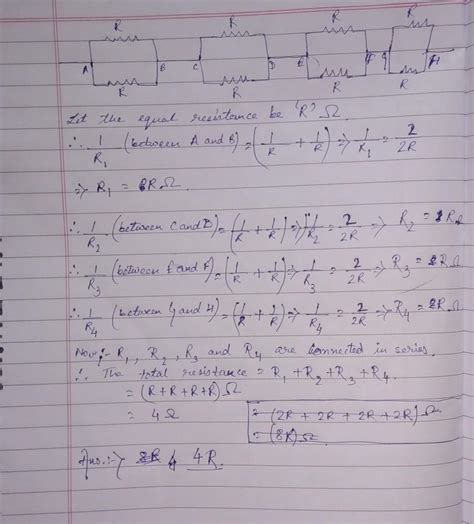 R R R R
A B C D E F G H
R R R R
Let the equal resistance be 'R' Ω.
∴ 1/R₁ (between A and B) = (1/R + 1/R) ⇒ 1/R₁ = 2/2R
⇒ R₁ = R Ω
∴ 1/R₂ (between C and D) = (1/R + 1/R) ⇒ 1/R₂ = 2/2R ⇒ R₂ = R Ω
∴ 1/R₃ (between E and F) = (1/R + 1/R) ⇒ 1/R₃ = 2/2R ⇒ R₃ = R Ω
∴ 1/R₄ (between G and H) = (1/R + 1/R) ⇒ 1/R₄ = 2/2R ⇒ R₄ = R Ω
Now:- R₁, R₂, R₃ and R₄ are connected in series.
∴ The total resistance = R₁ + R₂ + R₃ + R₄.
= (R + R + R + R) Ω
= 4 Ω
= (2R + 2R + 2R + 2R) Ω
= (8R) Ω
Ans:- 8R 4R.